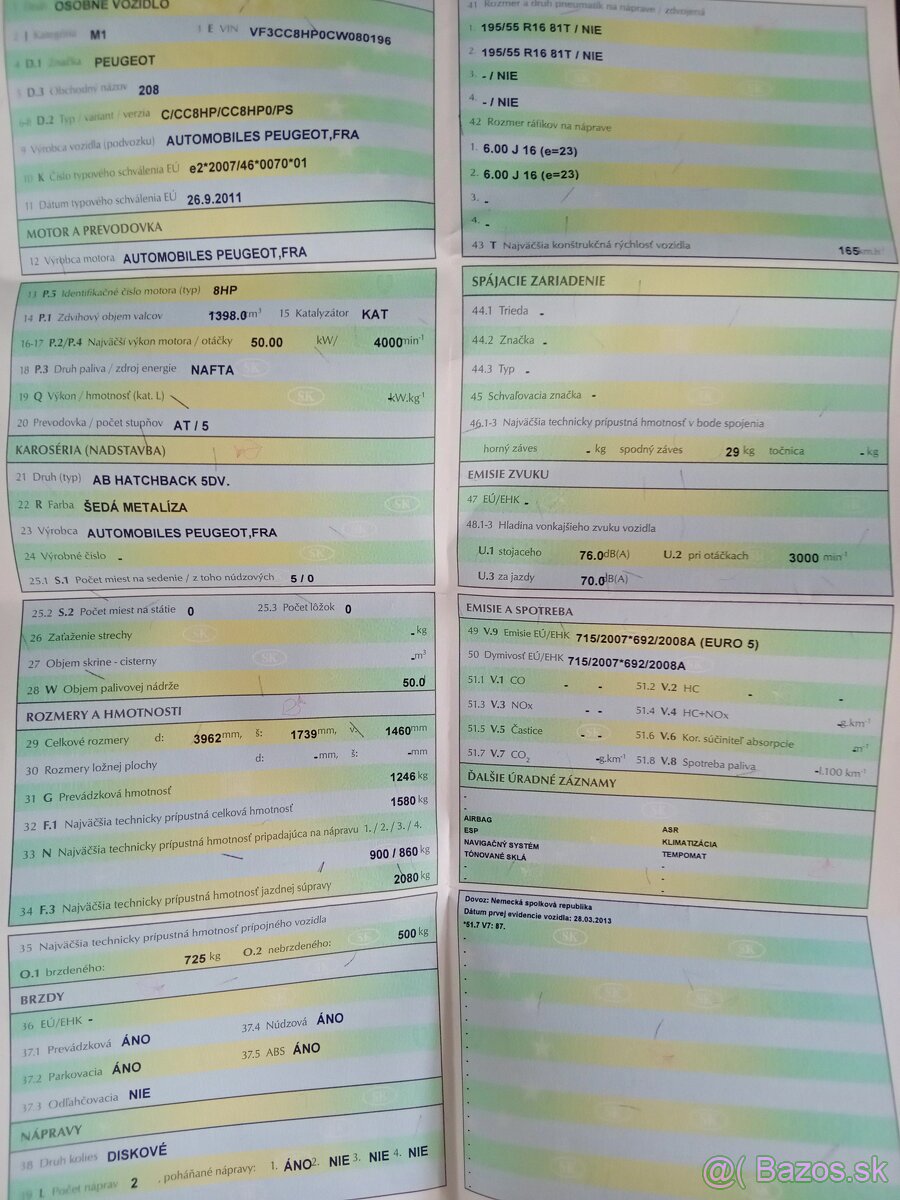 1 Druh OSOBNÉ VOZIDLO
2 J Kategória M1 3 E VIN VF3CC8HP0CW080196
4 D.1 Značka PEUGEOT
5 D.3 Obchodný názov 208
6-8 D.2 Typ / variant / verzia C/CC8HP/CC8HP0/PS
9 Výrobca vozidla (podvozku) AUTOMOBILES PEUGEOT,FRA
10 K Číslo typového schválenia EÚ e2*2007/46*0070*01
11 Dátum typového schválenia EÚ 26.9.2011
MOTOR A PREVODOVKA
12 Výrobca motora AUTOMOBILES PEUGEOT,FRA
13 P.5 Identifikačné číslo motora (typ) 8HP
14 P.1 Zdvihový objem valcov 1398.0 cm³ 15 Katalyzátor KAT
16-17 P.2/P.4 Najväčší výkon motora / otáčky 50.00 kW/ 4000 min⁻¹
18 P.3 Druh paliva / zdroj energie NAFTA
19 Q Výkon / hmotnosť (kat. L) - kW.kg⁻¹
20 Prevodovka / počet stupňov AT / 5
KAROSÉRIA (NADSTAVBA)
21 Druh (typ) AB HATCHBACK 5DV.
22 R Farba ŠEDÁ METALÍZA
23 Výrobca AUTOMOBILES PEUGEOT,FRA
24 Výrobné číslo -
25.1 S.1 Počet miest na sedenie / z toho núdzových 5 / 0
25.2 S.2 Počet miest na státie 0 25.3 Počet lôžok 0
26 Zaťaženie strechy - kg
27 Objem skrine - cisterny - m³
28 W Objem palivovej nádrže 50.0
ROZMERY A HMOTNOSTI
29 Celkové rozmery d: 3962 mm, š: 1739 mm, v: 1460 mm
30 Rozmery ložnej plochy d: - mm, š: - mm
31 G Prevádzková hmotnosť 1246 kg
32 F.1 Najväčšia technicky prípustná celková hmotnosť 1580 kg
33 N Najväčšia technicky prípustná hmotnosť pripadajúca na nápravu 1. / 2. / 3. / 4.
900 / 860 kg
34 F.3 Najväčšia technicky prípustná hmotnosť jazdnej súpravy 2080 kg
35 Najväčšia technicky prípustná hmotnosť prípojného vozidla
O.1 brzdeného: 725 kg O.2 nebrzdeného: 500 kg
BRZDY
36 EÚ/EHK -
37.1 Prevádzková ÁNO 37.4 Núdzová ÁNO
37.2 Parkovacia ÁNO 37.5 ABS ÁNO
37.3 Odľahčovacia NIE
NÁPRAVY
38 Druh kolies DISKOVÉ
39 L Počet náprav 2 , poháňané nápravy: 1. ÁNO 2. NIE 3. NIE 4. NIE
41 Rozmer a druh pneumatík na náprave / zdvojená
1. 195/55 R16 81T / NIE
2. 195/55 R16 81T / NIE
3. - / NIE
4. - / NIE
42 Rozmer ráfikov na náprave
1. 6.00 J 16 (e=23)
2. 6.00 J 16 (e=23)
3. -
4. -
43 T Najväčšia konštrukčná rýchlosť vozidla 165 km.h⁻¹
SPÁJACIE ZARIADENIE
44.1 Trieda -
44.2 Značka -
44.3 Typ -
45 Schvaľovacia značka -
46.1-3 Najväčšia technicky prípustná hmotnosť v bode spojenia
horný záves - kg spodný záves 29 kg točnica - kg
EMISIE ZVUKU
47 EÚ/EHK -
48.1-3 Hladina vonkajšieho zvuku vozidla
U.1 stojaceho 76.0 dB(A) U.2 pri otáčkach 3000 min⁻¹
U.3 za jazdy 70.0 dB(A)
EMISIE A SPOTREBA
49 V.9 Emisie EÚ/EHK 715/2007*692/2008A (EURO 5)
50 Dymivosť EÚ/EHK 715/2007*692/2008A
51.1 V.1 CO - - 51.2 V.2 HC -
51.3 V.3 NOx - - 51.4 V.4 HC+NOx - g.km⁻¹
51.5 V.5 Častice - - 51.6 V.6 Kor. súčiniteľ absorpcie - m⁻¹
51.7 V.7 CO₂ - g.km⁻¹ 51.8 V.8 Spotreba paliva - l.100 km⁻¹
ĎALŠIE ÚRADNÉ ZÁZNAMY
AIRBAG
ESP ASR
NAVIGAČNÝ SYSTÉM KLIMATIZÁCIA
TÓNOVANÉ SKLÁ TEMPOMAT
Dovoz: Nemecká spolková republika
Dátum prvej evidencie vozidla: 28.03.2013
*51.7 V7: 87.
@( Bazos.sk